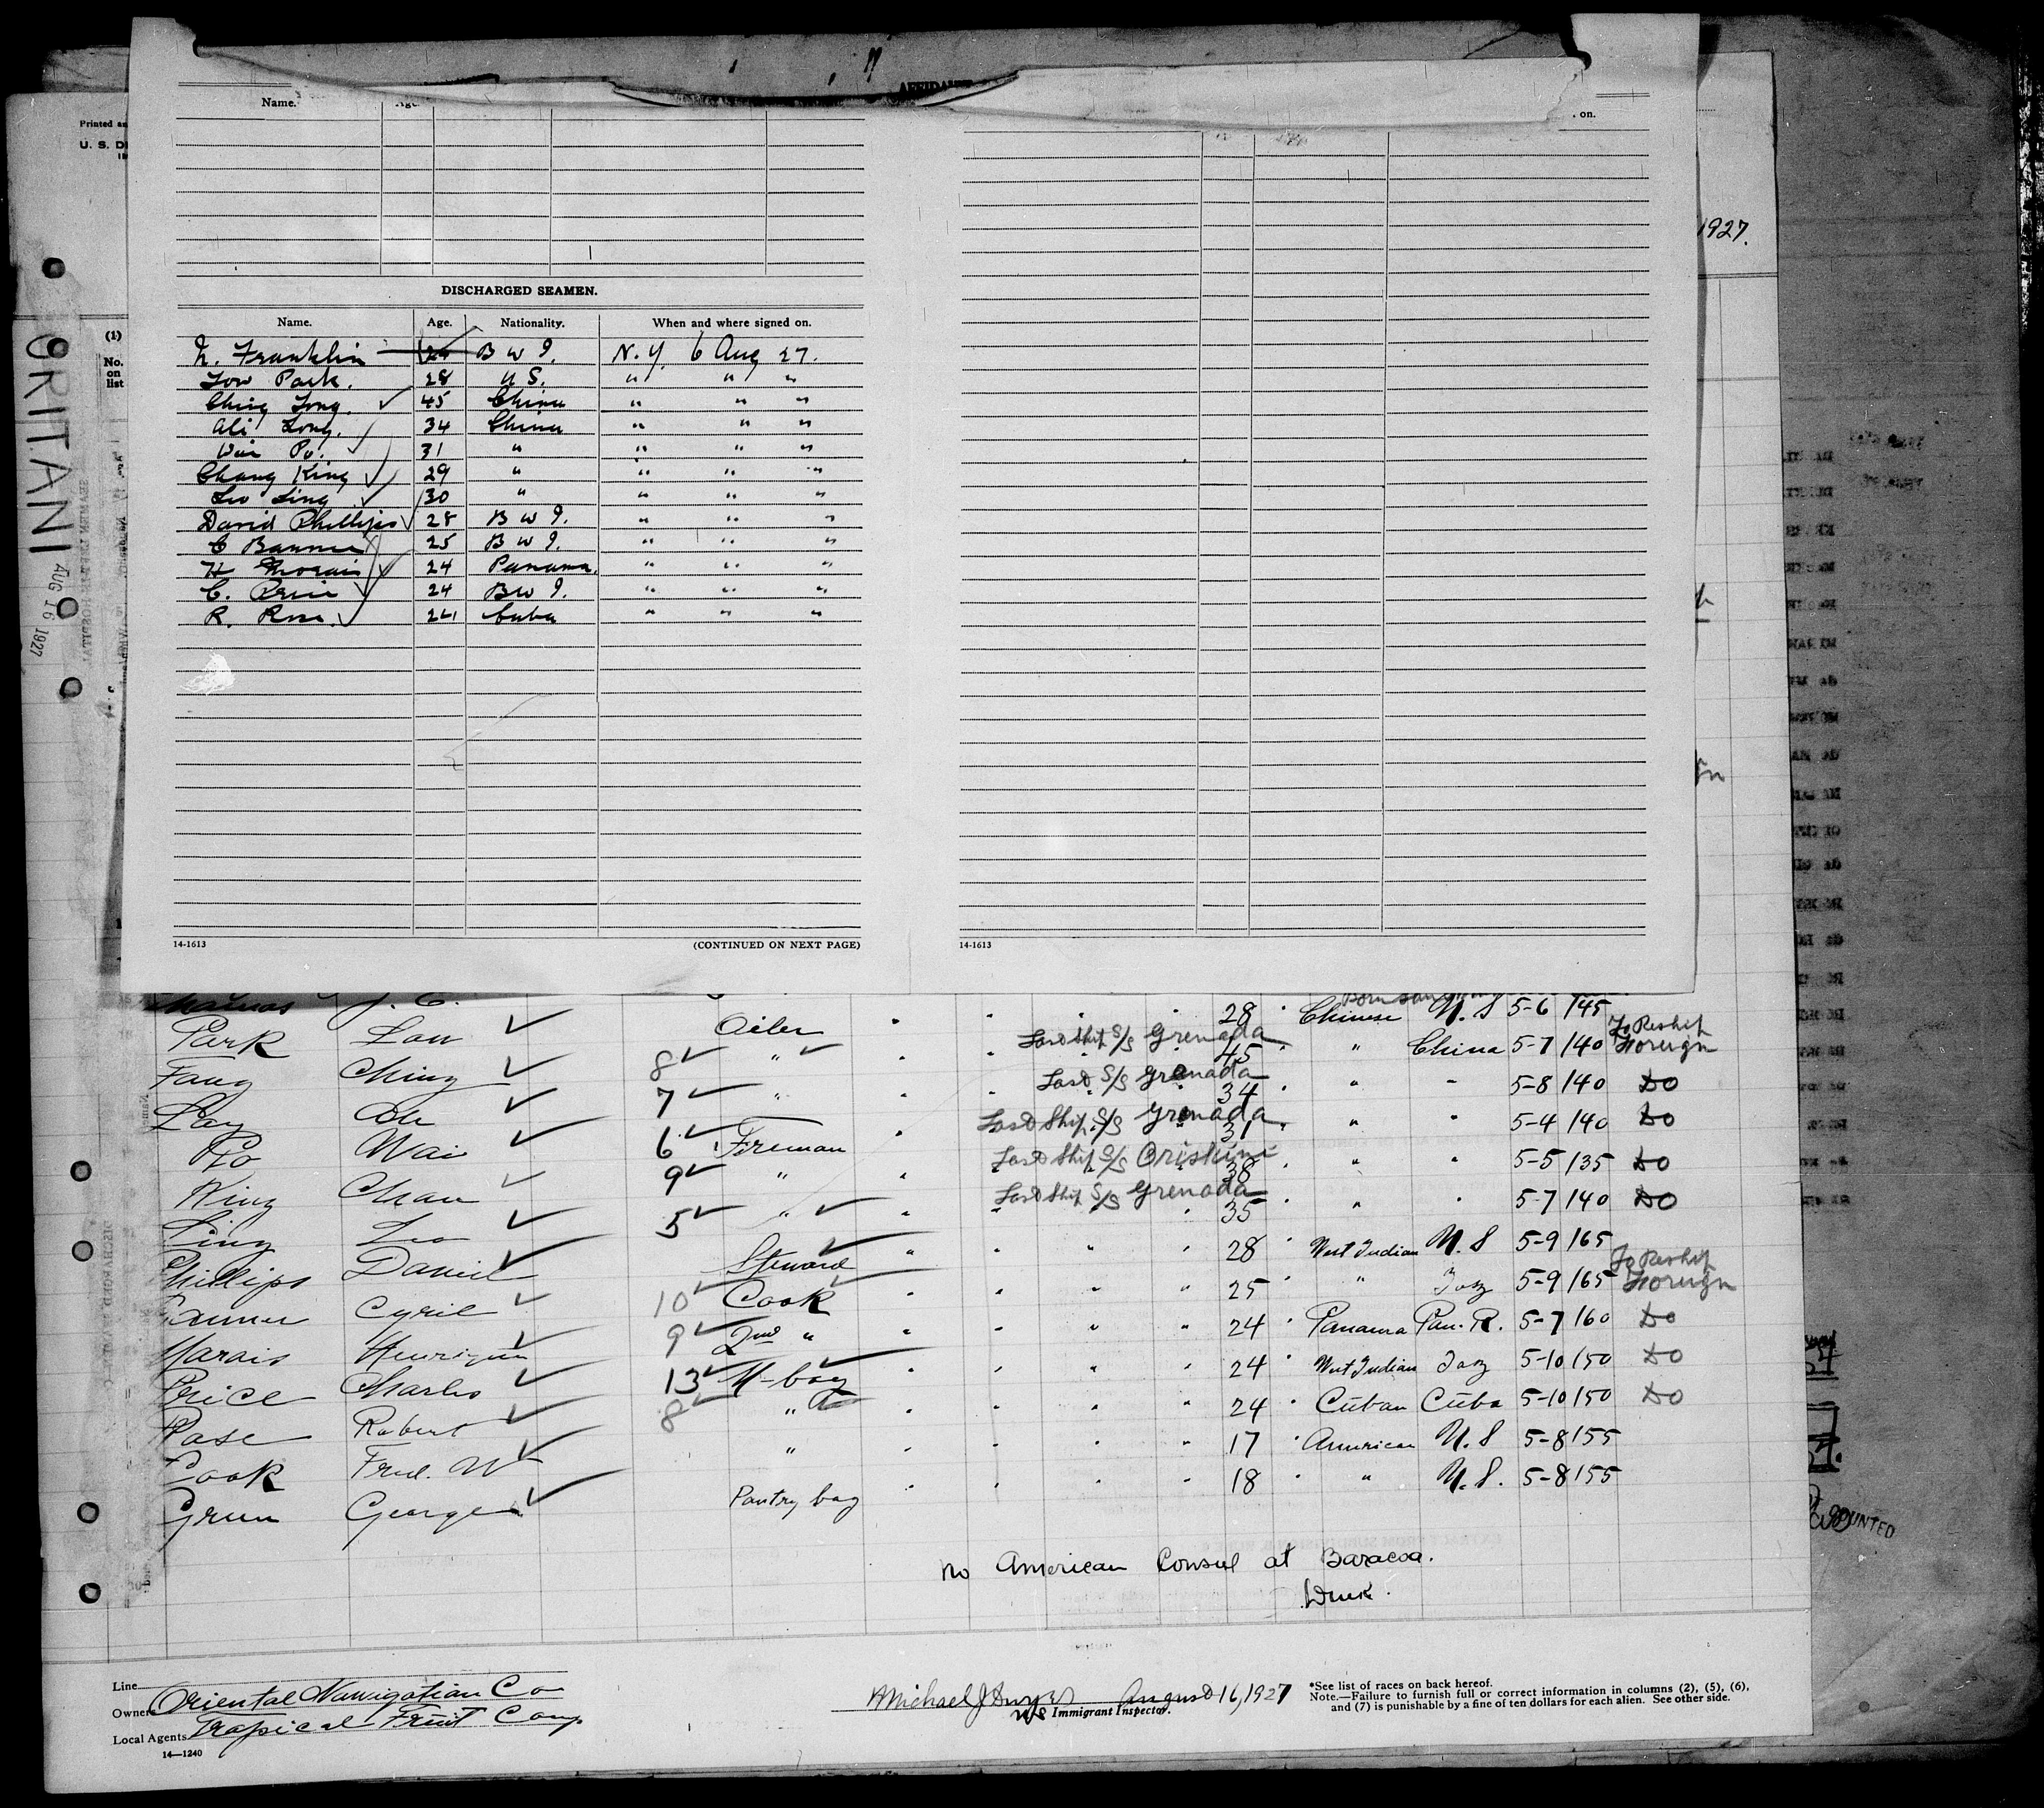 1927.
Printed
U. S. D
(1)
No.
on
list
ORITANI
AUG 16 1927
AFFIDAVIT
Name. Age.
on.
DISCHARGED SEAMEN.
Name. Age. Nationality. When and where signed on.
N. Franklin B W I. N. Y. 6 Aug 27.
Low Park. 28 U S. " " "
Ching Fong. 45 China " " "
Ali Long. 34 China " " "
Wai Po. 31 " " " "
Chang King 29 " " " "
Leo Ling 30 " " " "
David Phillips 28 B W I. " " "
C 25 B W I. " " "
H Morais 24 Panama. " " "
C. Price 24 B W I. " " "
R. Rose. 24 Cuba " " "
14-1613 (CONTINUED ON NEXT PAGE) 14-1613
J. C.
Park Lou Oiler 28 Chinese U. S 5-6 145
Fang Ching 8 " Last Ship S/S Grenada 45 " China 5-7 140 To Reship Foreign
Lay Ale 7 " Last S/S Grenada 34 " " 5-8 140 DO
Po Wai 6 Fireman Last Ship S/S Grenada 31 " " 5-4 140 DO
King Chan 9 " Last Ship S/S 38 " " 5-5 135 DO
Ling Leo 5 " Last Ship S/S Grenada 35 " " 5-7 140 DO
Phillips Daniel Steward 28 West Indian U. S 5-9 165
Cyril 10 Cook 25 " 5-9 165 To Reship Foreign
Marais 9 2nd " 24 Panama Pan. R. 5-7 160 DO
Price Charles 13 M-boy 24 West Indian 5-10 150 DO
Rose Robert 8 " 24 Cuban Cuba 5-10 150 DO
Cook Fred. W " 17 American U. S 5-8 155
Green George Pantry boy 18 " U. S. 5-8 155
No American Consul at Baracoa.
COUNTED
Line
Owners Oriental Navigation Co
Local Agents Tropical Fruit Comp
14—1240
Michael J Dwyer August 16, 1927
US Immigrant Inspector.
*See list of races on back hereof.
Note.—Failure to furnish full or correct information in columns (2), (5), (6),
and (7) is punishable by a fine of ten dollars for each alien. See other side.